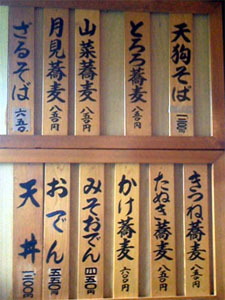 天狗そば 一二〇〇円
とろろ蕎麦 八五〇円
山菜蕎麦 八五〇円
月見蕎麦 八五〇円
ざるそば 六五〇
きつね蕎麦 八五〇円
たぬき蕎麦 八五〇円
かけ蕎麦 六〇〇円
みそおでん
おでん
天丼